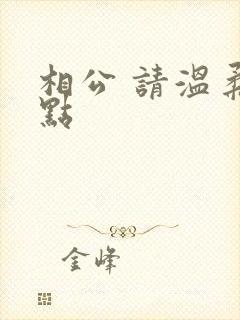 相公 請溫柔
點
金峰